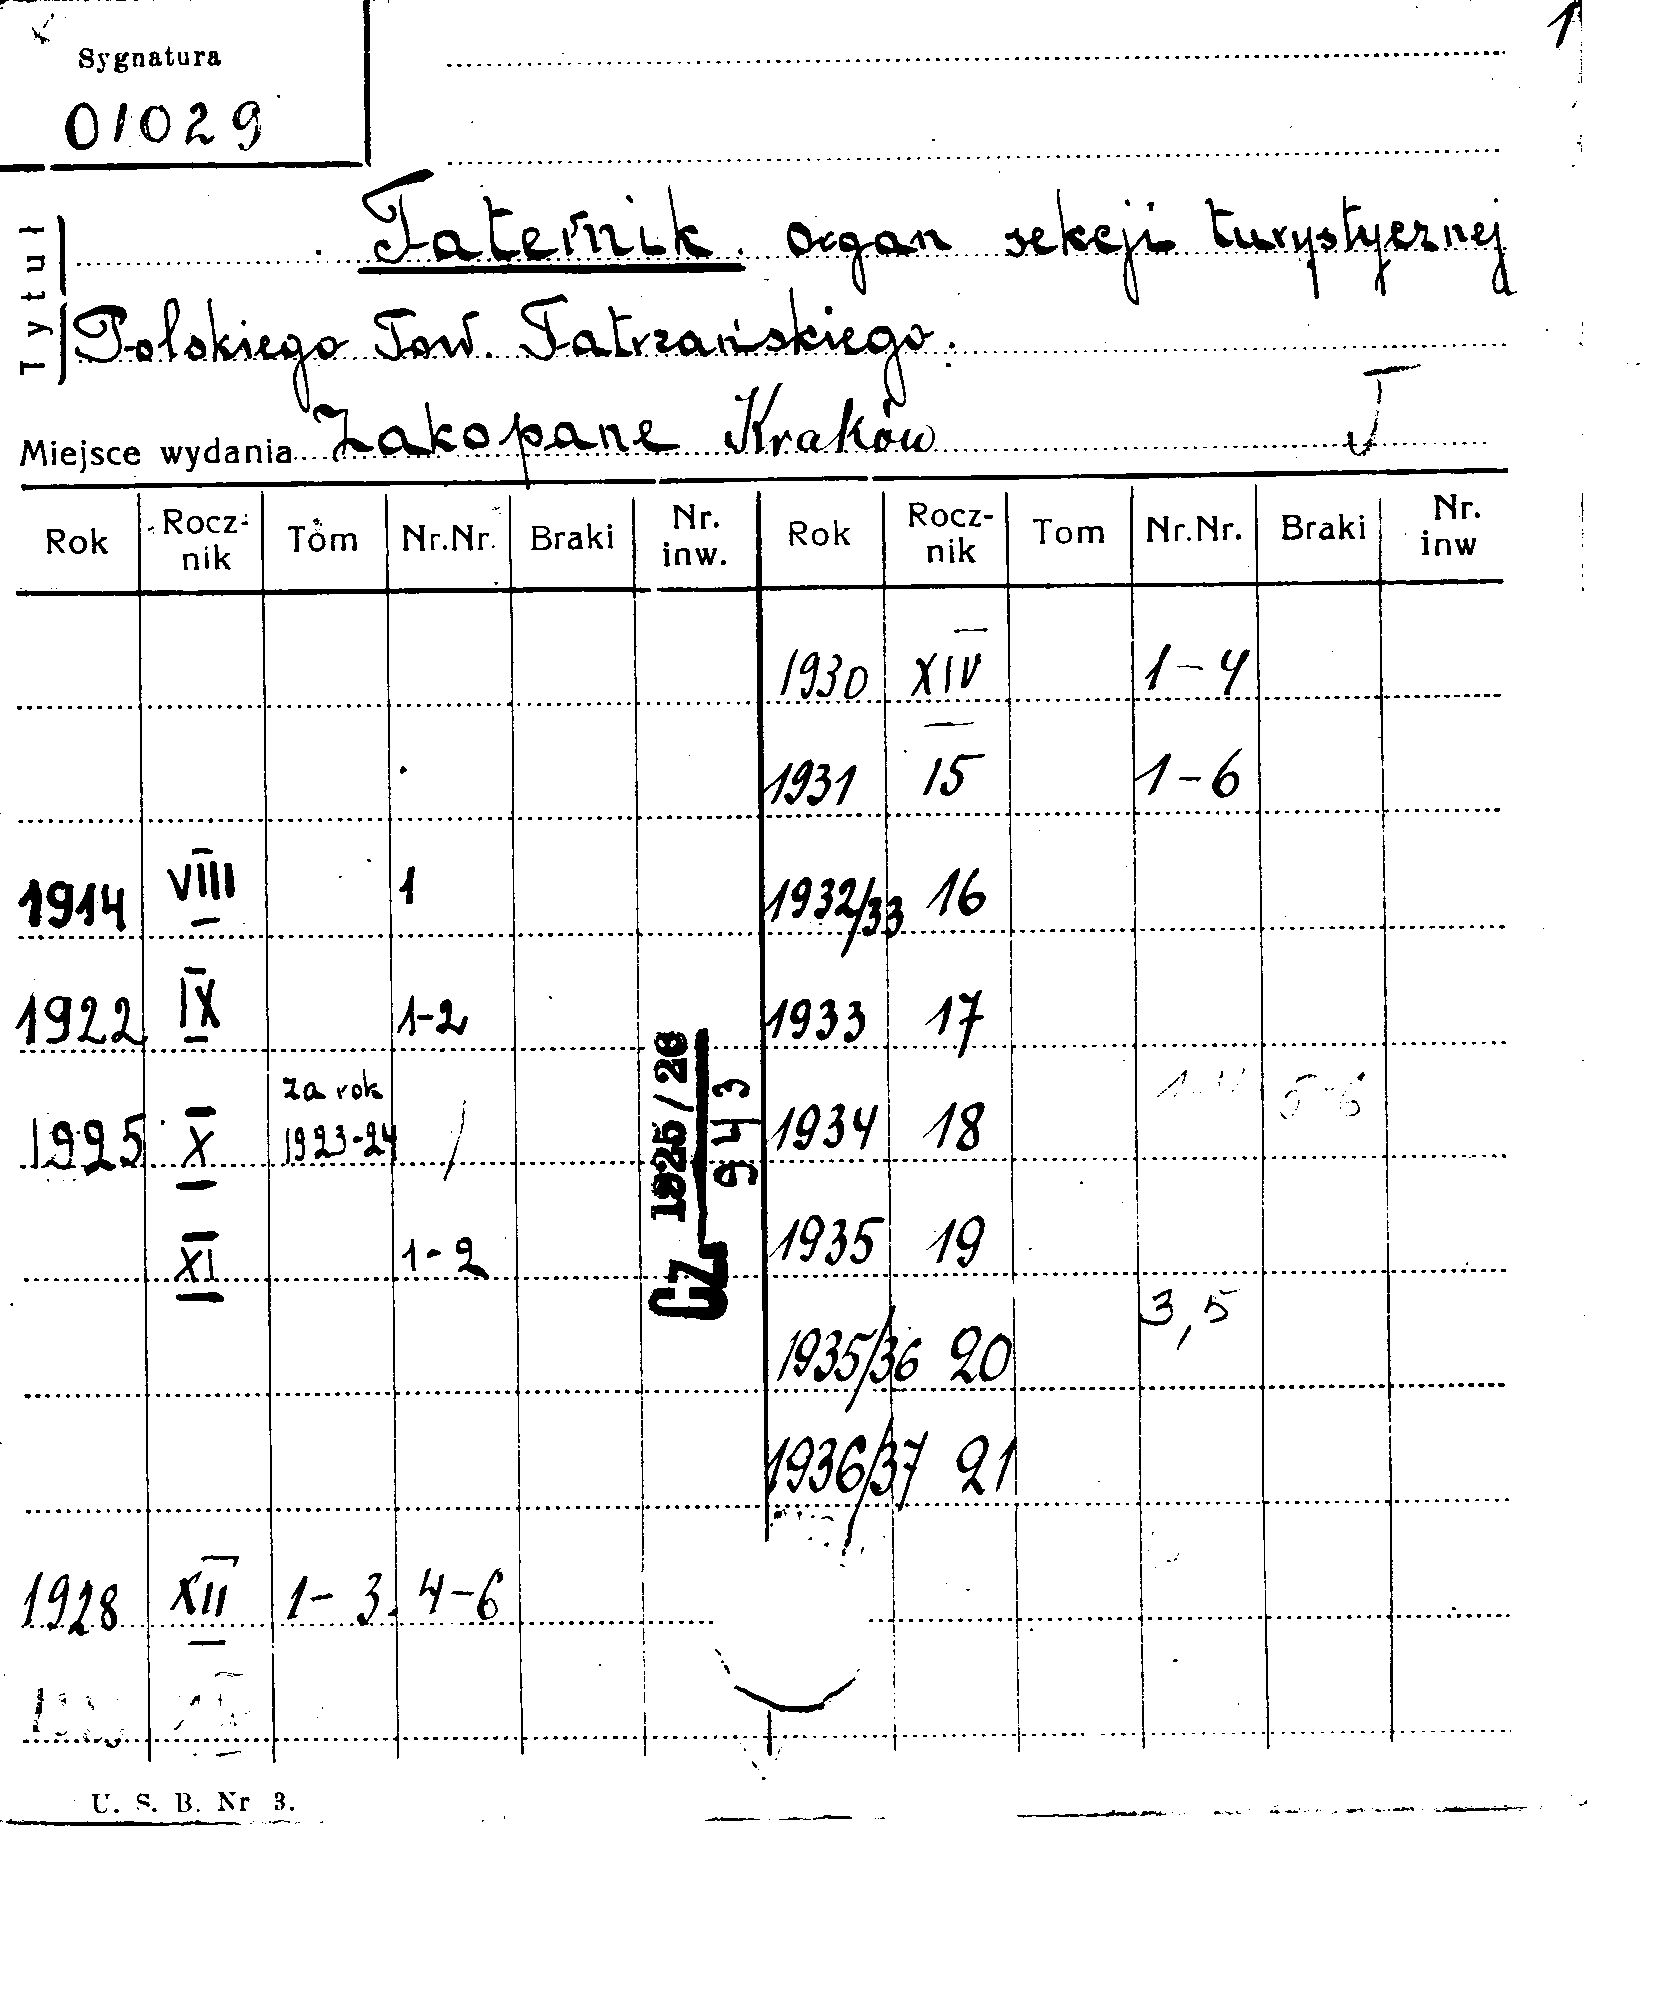 1
Sygnatura
01029
Tytuł
Taternik. organ sekcji turystycznej
Polskiego Tow. Tatrzańskiego.
Miejsce wydania Zakopane Kraków
Rok Rocz-nik Tom Nr.Nr. Braki Nr. inw. Rok Rocz-nik Tom Nr.Nr. Braki Nr. inw
1930 XIV 1-4
1931 15 1-6
1914 VIII 1 1932/33 16
1922 IX 1-2 1933 17
1925 X za rok 1923-24 1934 18 5-6
XI 1-2 1935 19
Cz. 1925/26
943
1935/36 20 3,5
1936/37 21
1928 XII 1-3. 4-6
U. S. B. Nr 3.